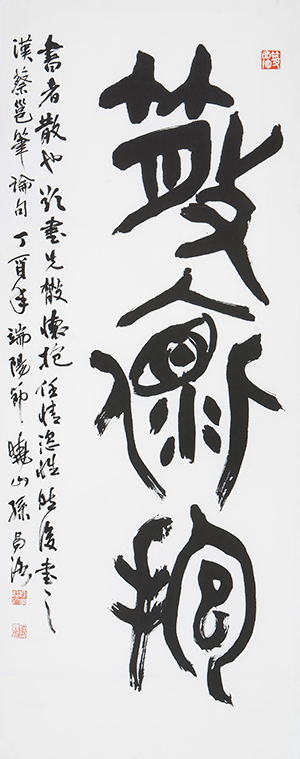 散懷抱
書者散也欲書先散懷抱任情恣性然後書之
漢蔡邕筆論句丁酉年端陽節曉山孫